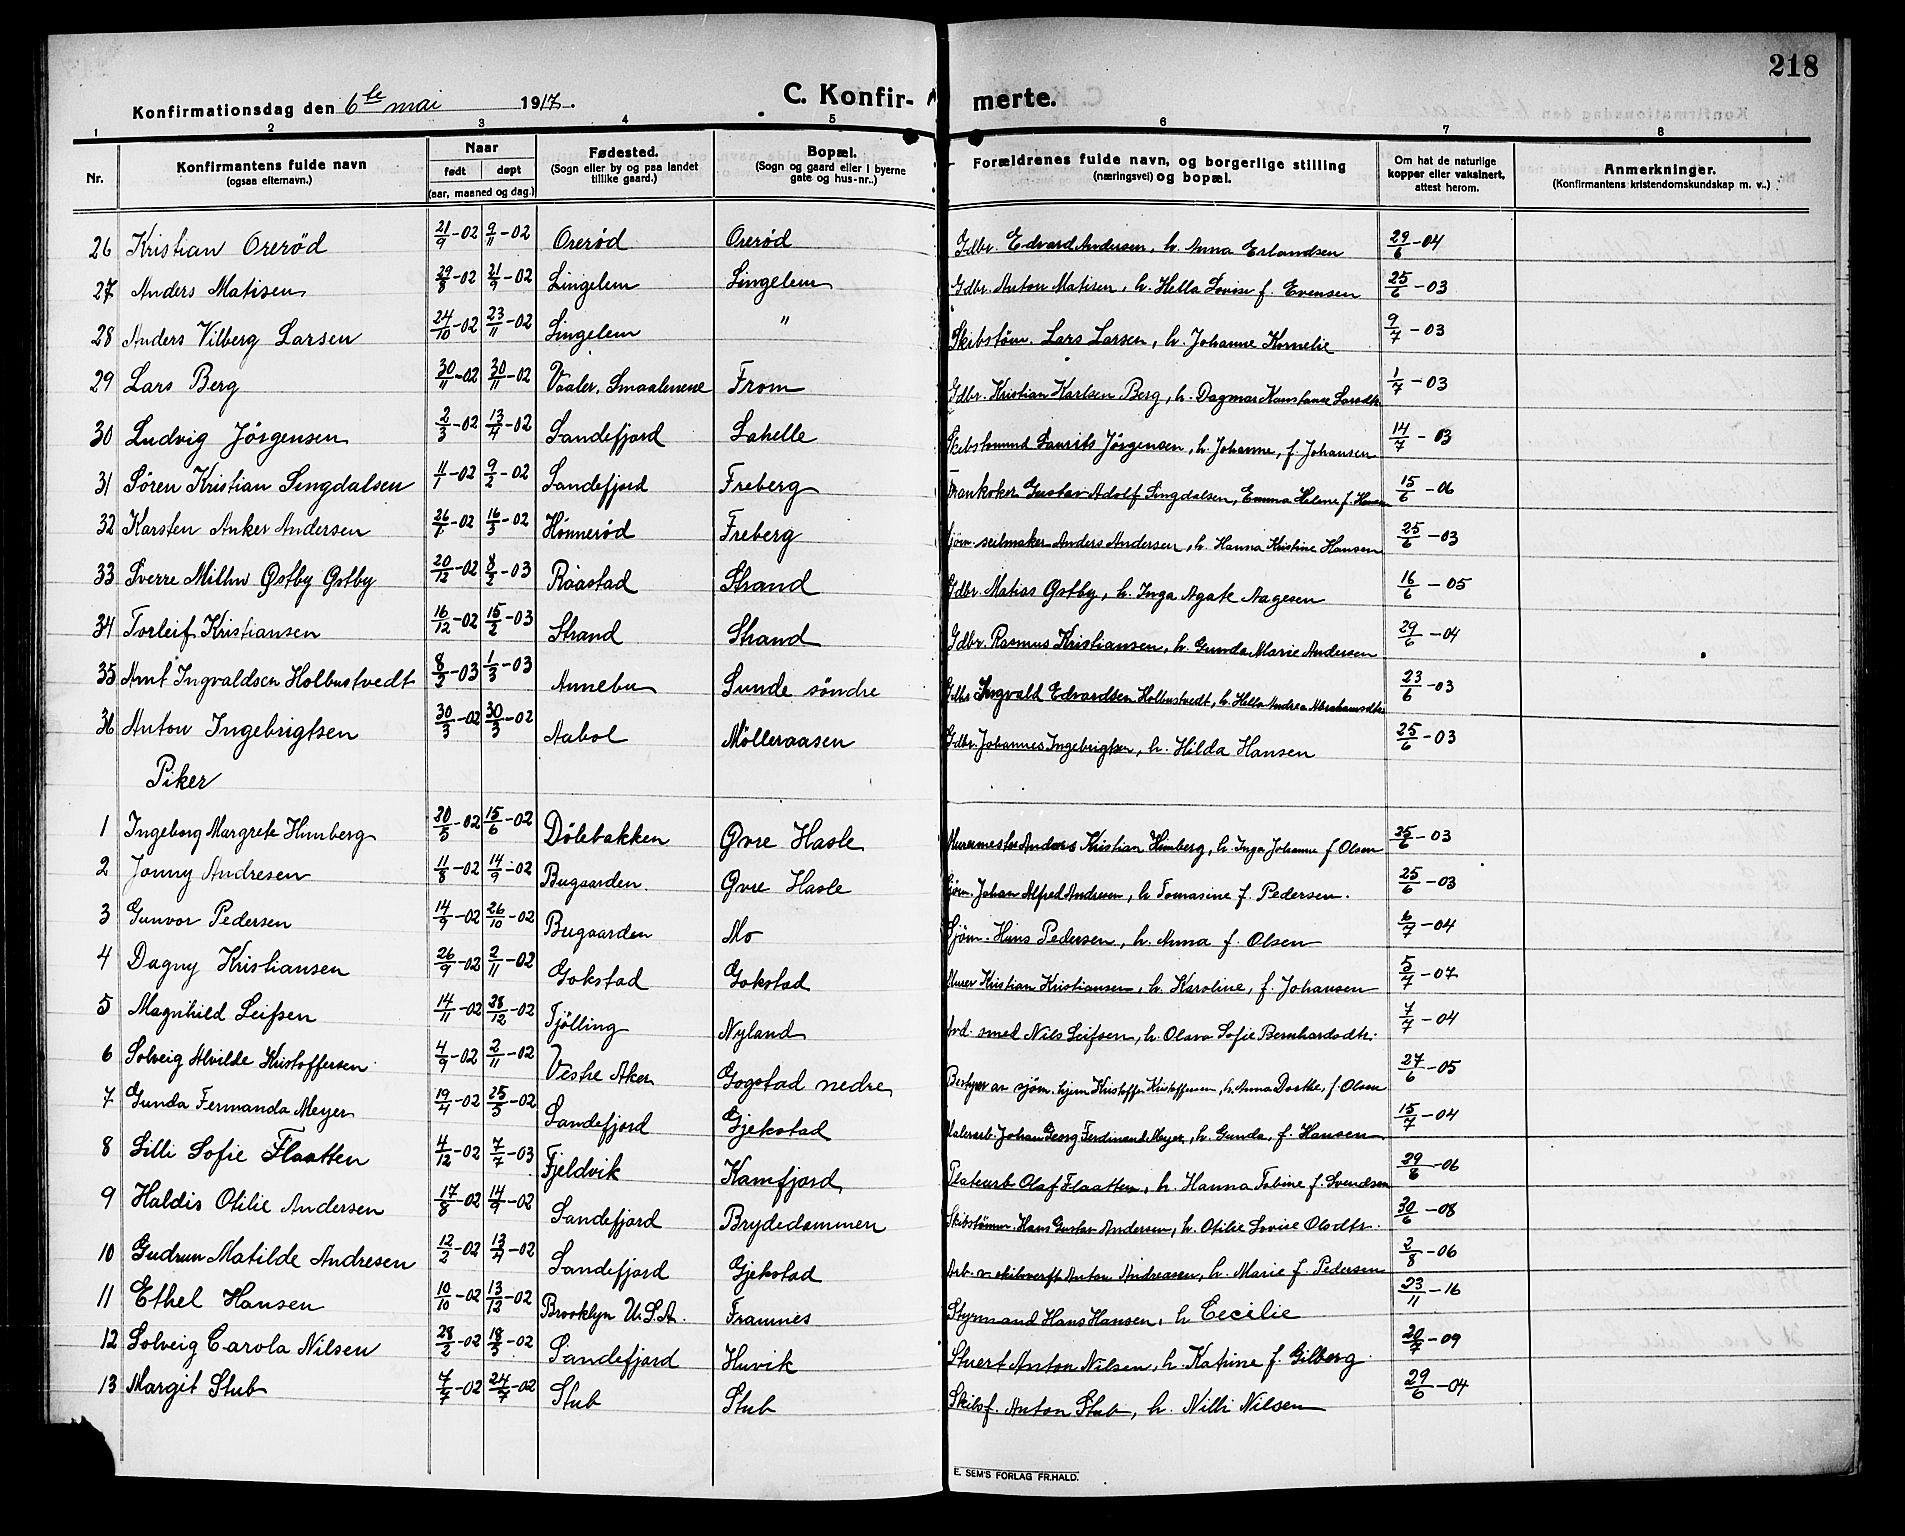 218
Konfirmationsdag den 6te mai 1917. C. Konfirmerte.
1 2 3 4 5 6 7 8
Nr. Konfirmantens fulde navn (ogsaa efternavn.) Naar født døpt (aar, maaned og dag.) Fødested. (Sogn eller by og paa landet tillike gaard.) Bopæl. (Sogn og gaard eller i byerne gate og hus-nr.) Forældrenes fulde navn, og borgerlige stilling (næringsvei) og bopæl. Om hat de naturlige kopper eller vaksinert, attest herom. Anmerkninger. (Konfirmantens kristendomskundskap m. v.)
26 Kristian Orerød 21/9-02 9/11-02 Orerød Orerød Gdbr. Edvard Andersen, h. Anna Erlandsen 29/6-04
27 Anders Matisen 29/8-02 21/9-02 Lingelem Lingelem Gdbr. Anton Matisen, h. Hella Lovise f. Evensen 25/6-03
28 Anders Vilberg Larsen 24/10-02 23/11-02 Lingelem " Skibstøm. Lars Larsen, h. Johanne Kornelie 9/7-03
29 Lars Berg 30/11-02 30/11-02 Vaaler, Smaalenene From Gdbr. Kristian Karlsen Berg, h. Dagmar Konstance Larsdtr 1/7-03
30 Ludvig Jörgensen 2/3-02 13/4-02 Sandefjord Lahelle Laurits Jörgensen, h. Johanne, f. Johansen 14/7-03
31 Søren Kristian Lingdalsen 11/1-02 9/2-02 Sandefjord Freberg Trankoker Gustav Adolf Lingdalsen, Emma Helene f. Hansen 15/6-06
32 Karsten Anker Andersen 26/1-02 16/3-02 Hønnerød Freberg seilmaker Anders Andersen, h. Hanna Kristine Hansen 25/6-03
33 Sverre Østby Østby 20/12-02 8/2-03 Raastad Strand Gdbr. Matias Østby, h. Inga Agate Aagesen 16/6-05
34 Torleif Kristiansen 16/12-02 15/2-03 Strand Strand Gdbr. Rasmus Kristiansen, h. Gunda Marie Andersen 29/6-04
35 Arnt Ingvaldsen Holbustvedt 8/2-03 1/3-03 Annebu Sunde søndre Gdbr Ingvald Edvardsen Holbustvedt, h. Hella Andrea Abrahamsdtr 23/6-03
36 Anton Ingebrigtsen 30/3-02 30/3-02 Aabol Mölleraasen Gdbr. Johannes Ingebrigtsen, h. Hilda Hansen 25/6-03
Piker
1 Ingeborg Margrete Humberg 30/5-02 15/6-02 Dølebakken Øvre Hasle Murermester Anders Kristian Humberg, h. Inga Johanne f Olsen 25/6-03
2 Jonny Andresen 11/8-02 14/9-02 Bugaarden. Øvre Hasle Sjøm. Johan Alfred Andresen, h Tomasine f. Pedersen. 25/6-03
3 Gunvor Pedersen 14/9-02 26/10-02 Bugaarden Mo Sjøm. Hans Pedersen, h. Anna f. Olsen 6/7-04
4 Dagny Kristiansen 26/9-02 2/11-02 Gokstad Gokstad Murer Kristian Kristiansen, h. Karoline, f. Johansen 5/7-07
5 Magnhild Leifsen 14/11-02 28/12-02 Tjölling Nyland smed Nils Leifsen, h. Olava Sofie Bernhardsdtr. 7/7-04
6 Solveig Alvilde Kristoffersen 4/9-02 2/11-02 Vestre Aker Gogstad nedre Bestyrer av sjøm. hjem Kristoffer Kristoffersen, h. Anna Dorthe, f Olsen 27/6-05
7 Gunda Fernanda Meyer 19/4-02 25/5-02 Sandefjord Gjekstad Malerarb. Johan Georg Ferdinand Meyer, h. Gunda, f. Hansen 15/7-04
8 Lilli Sofie Flaatten 4/12-02 7/7-03 Fjeldvik Kamfjord Platearb Olaf Flaatten, h. Hanna Tobine f. Svendsen 29/8-06
9 Haldis Otilie Andersen 17/8-02 14/9-02 Sandefjord Brydedammen Skibstömm. Hans Gustav Andersen, h. Otilie Lovise Olsdtr. 30/6-08
10 Gudrun Matilde Andresen 12/2-02 13/4-02 Sandefjord Gjekstad Arb. v. skibsverft Anton Andreasen, h. Marie f. Pedersen 2/8-06
11 Ethel Hansen 10/10-02 13/12-02 Brooklyn U.S.A. Framnes Styrmand Hans Hansen, h Cecilie 23/11-16
12 Solveig Carola Nilsen 28/2-02 18/5-02 Sandefjord Huvik Stuert Anton Nilsen, h. Katrine f. Gilberg 20/7-09
13 Margit Stub 7/7-02 24/7-02 Stub Stub Skibsf. Anton Stub, h. Nilli Nilsen 29/6-04
E. SEM'S FORLAG FR.HALD.